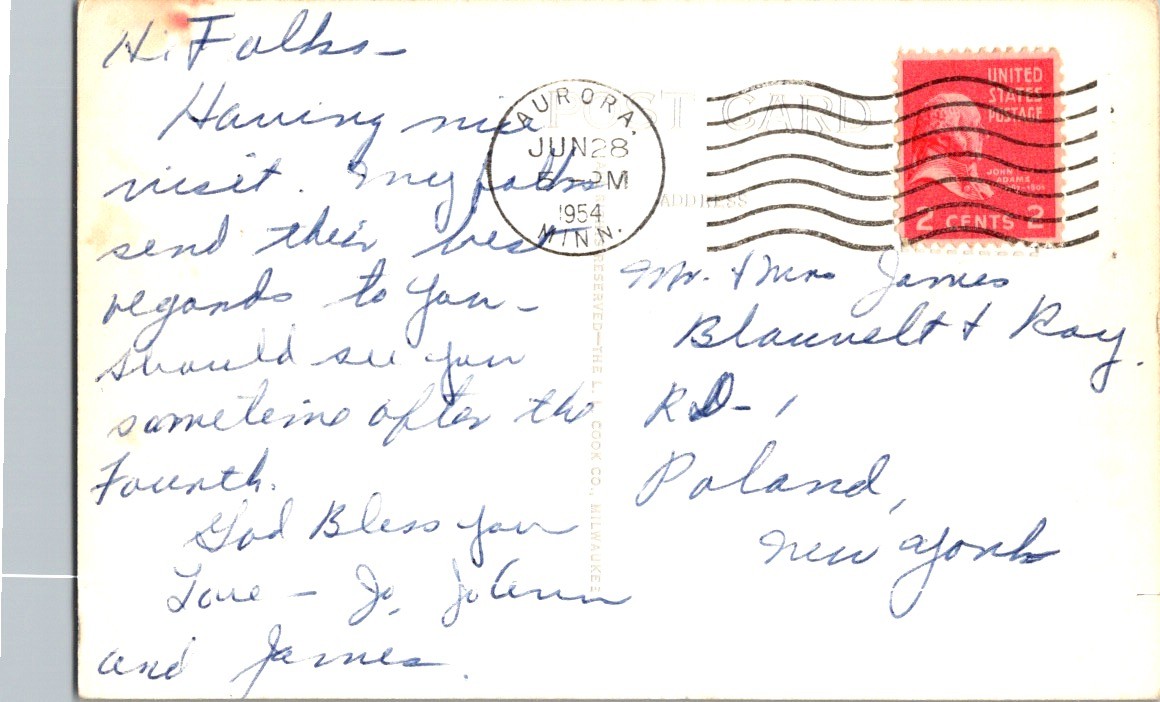 Hi Folks—
Having nice
visit. My folks
send their best
regards to you—
should see you
sometime after the
Fourth.
God Bless you
Love — Jo, JoAnn
and James.
POST CARD
ADDRESS
AURORA,
JUN 28
PM
1954
MINN.
UNITED
STATES
POSTAGE
JOHN
ADAMS
2 CENTS 2
RESERVED—THE L. L. COOK CO., MILWAUKEE
Mr. & Mrs James
Blauvelt & Ray.
RD-1
Poland,
New York